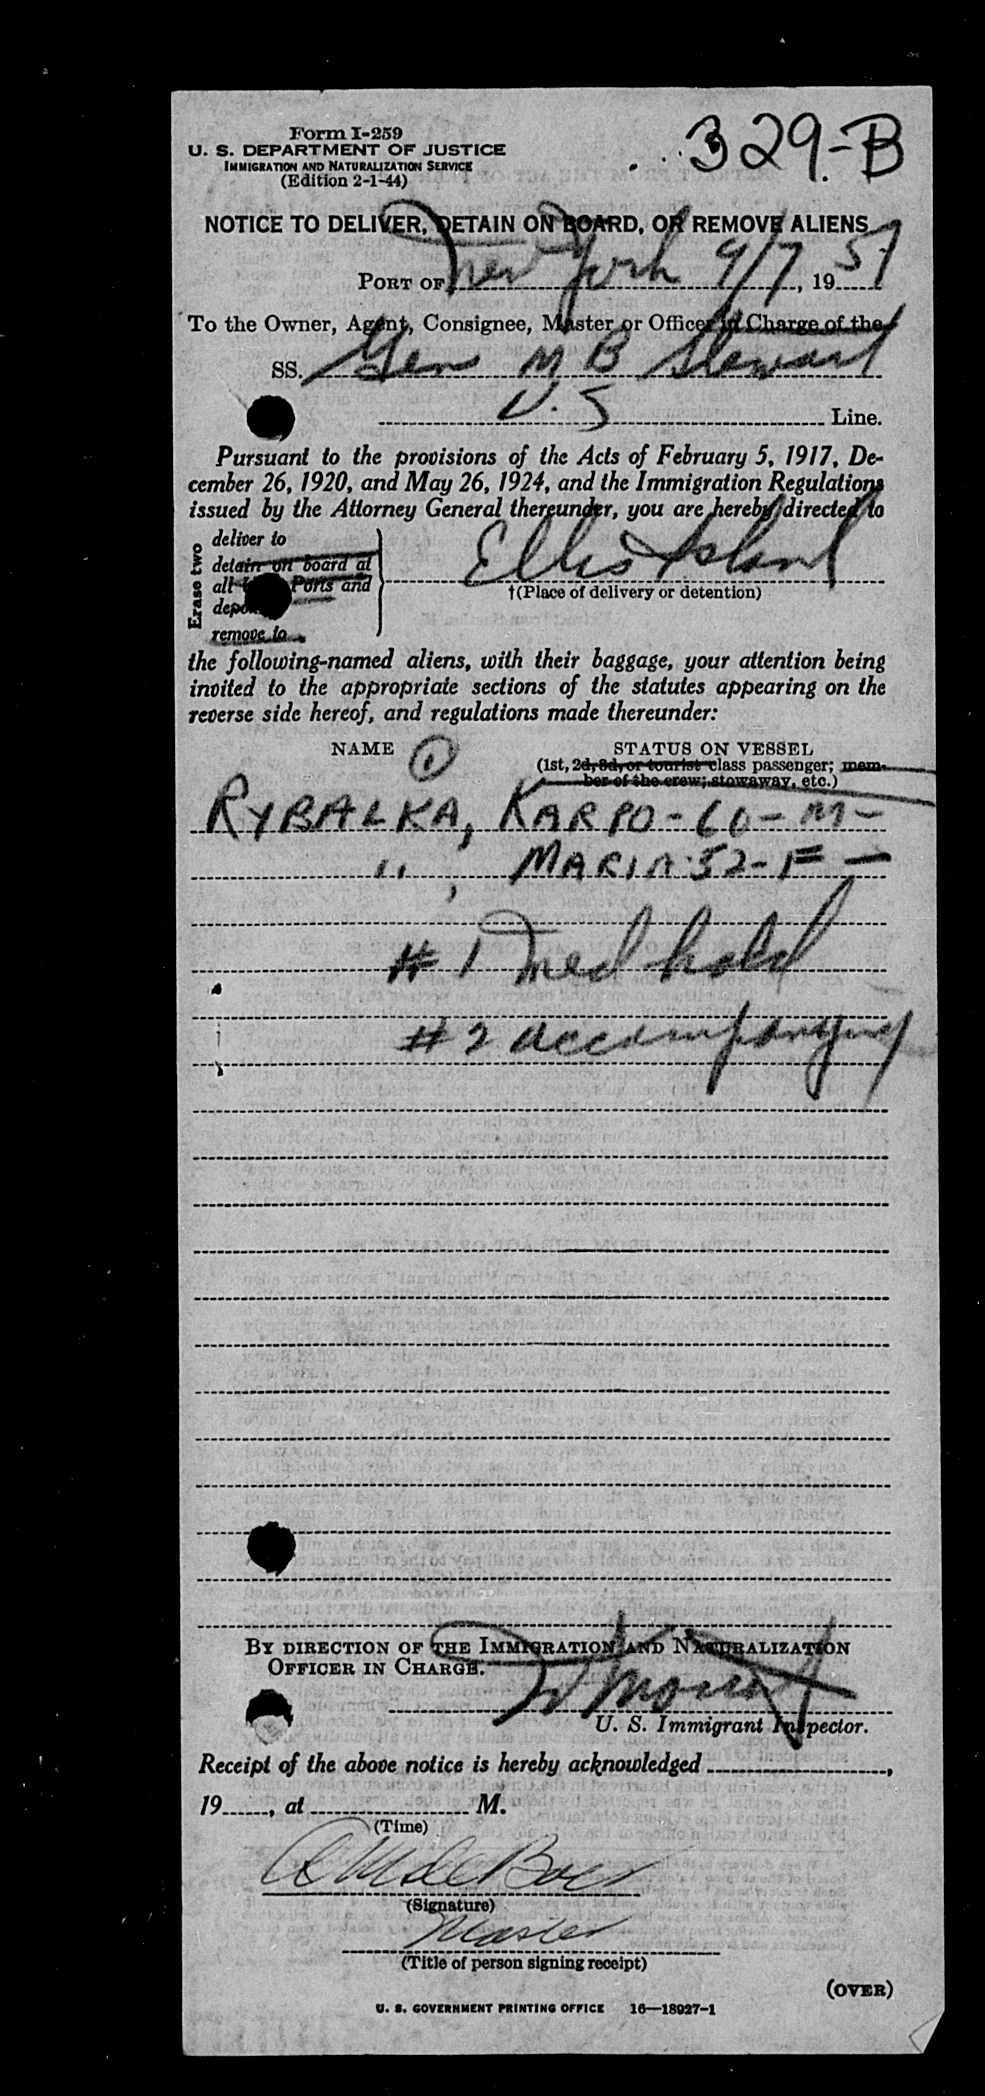 329-B
Form I-259
U. S. DEPARTMENT OF JUSTICE
IMMIGRATION AND NATURALIZATION SERVICE
(Edition 2-1-44)
NOTICE TO DELIVER, DETAIN ON BOARD, OR REMOVE ALIENS
PORT OF New York 9/7, 1951
To the Owner, Agent, Consignee, Master or Officer in Charge of the
SS. Gen M B Stewart
U.S Line.
Pursuant to the provisions of the Acts of February 5, 1917, De-
cember 26, 1920, and May 26, 1924, and the Immigration Regulations
issued by the Attorney General thereunder, you are hereby directed to
Erase two
deliver to
detain on board at
all Ports and
remove to
Ellis Island
†(Place of delivery or detention)
the following-named aliens, with their baggage, your attention being
invited to the appropriate sections of the statutes appearing on the
reverse side hereof, and regulations made thereunder:
NAME 1 STATUS ON VESSEL
(1st, 2d, 3d, or tourist class passenger; mem-
ber of the crew; stowaway, etc.)
RYBALKA, KARPO - 60 - M -
" , MARIA 52 - F -
# 1 Med hold
# 2 accompanying
BY DIRECTION OF THE IMMIGRATION AND NATURALIZATION
OFFICER IN CHARGE.
U. S. Immigrant Inspector.
Receipt of the above notice is hereby acknowledged ,
19 , at M.
(Time)
(Signature)
Master
(Title of person signing receipt)
(OVER)
U. S. GOVERNMENT PRINTING OFFICE 16—18927-1